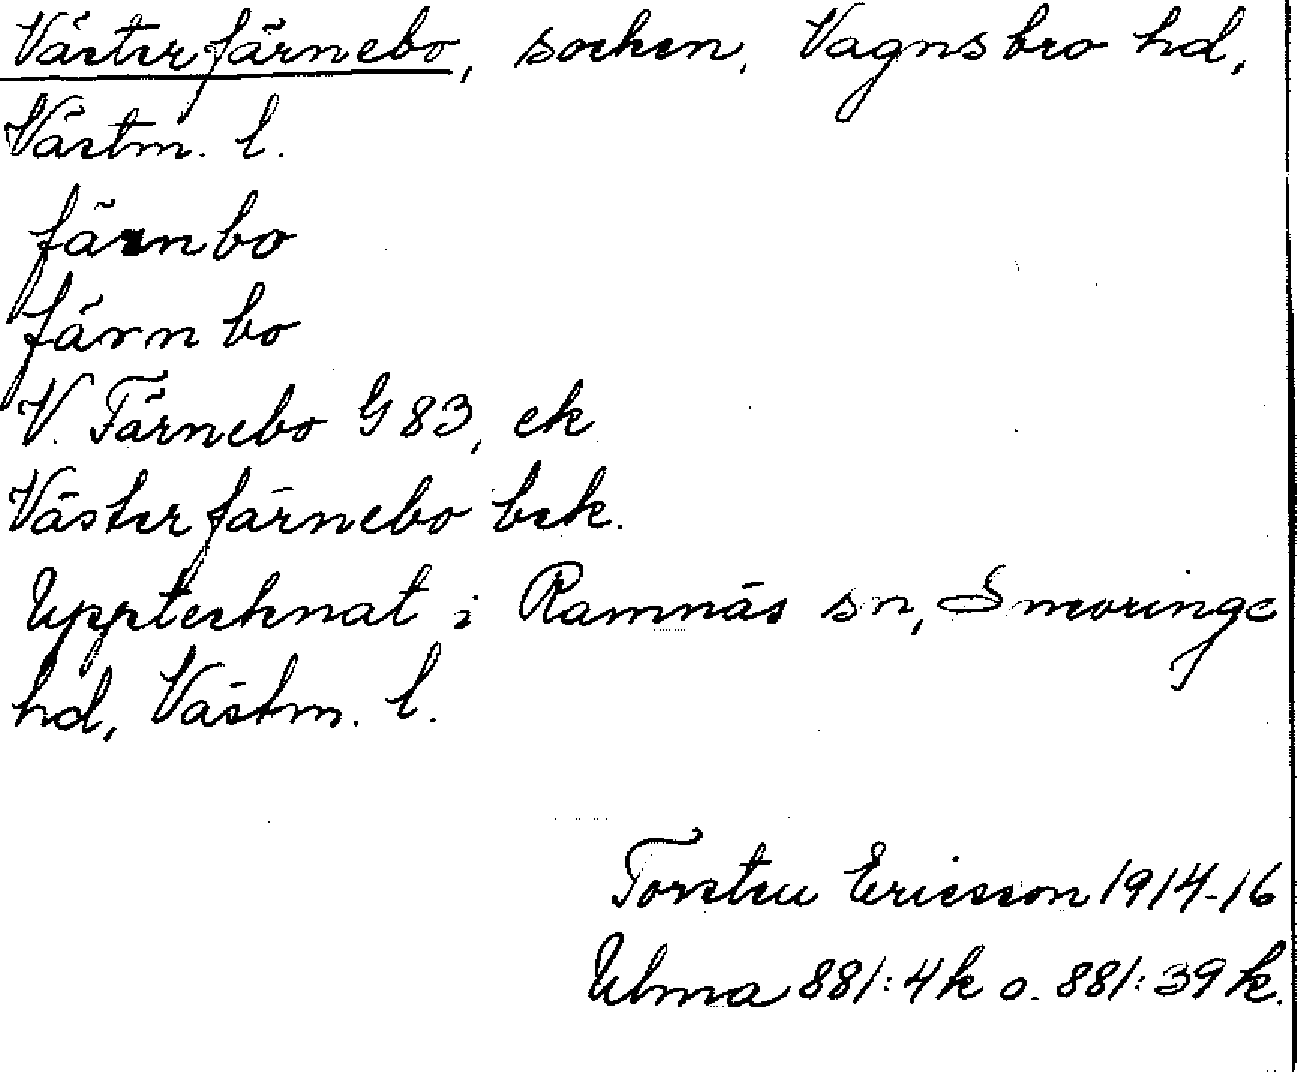 Västerfärnebo, socken, Vagnsbro hd,
Västm. l.
färnbo
färn bo
V. Färnebo G 83, ek
Västerfärnebo bek.
Upptecknat i Ramnäs sn, Snevringe
hd, Västm. l.
Torsten Ericsson 1914-16
Ulma 881:4k o. 881:39k.